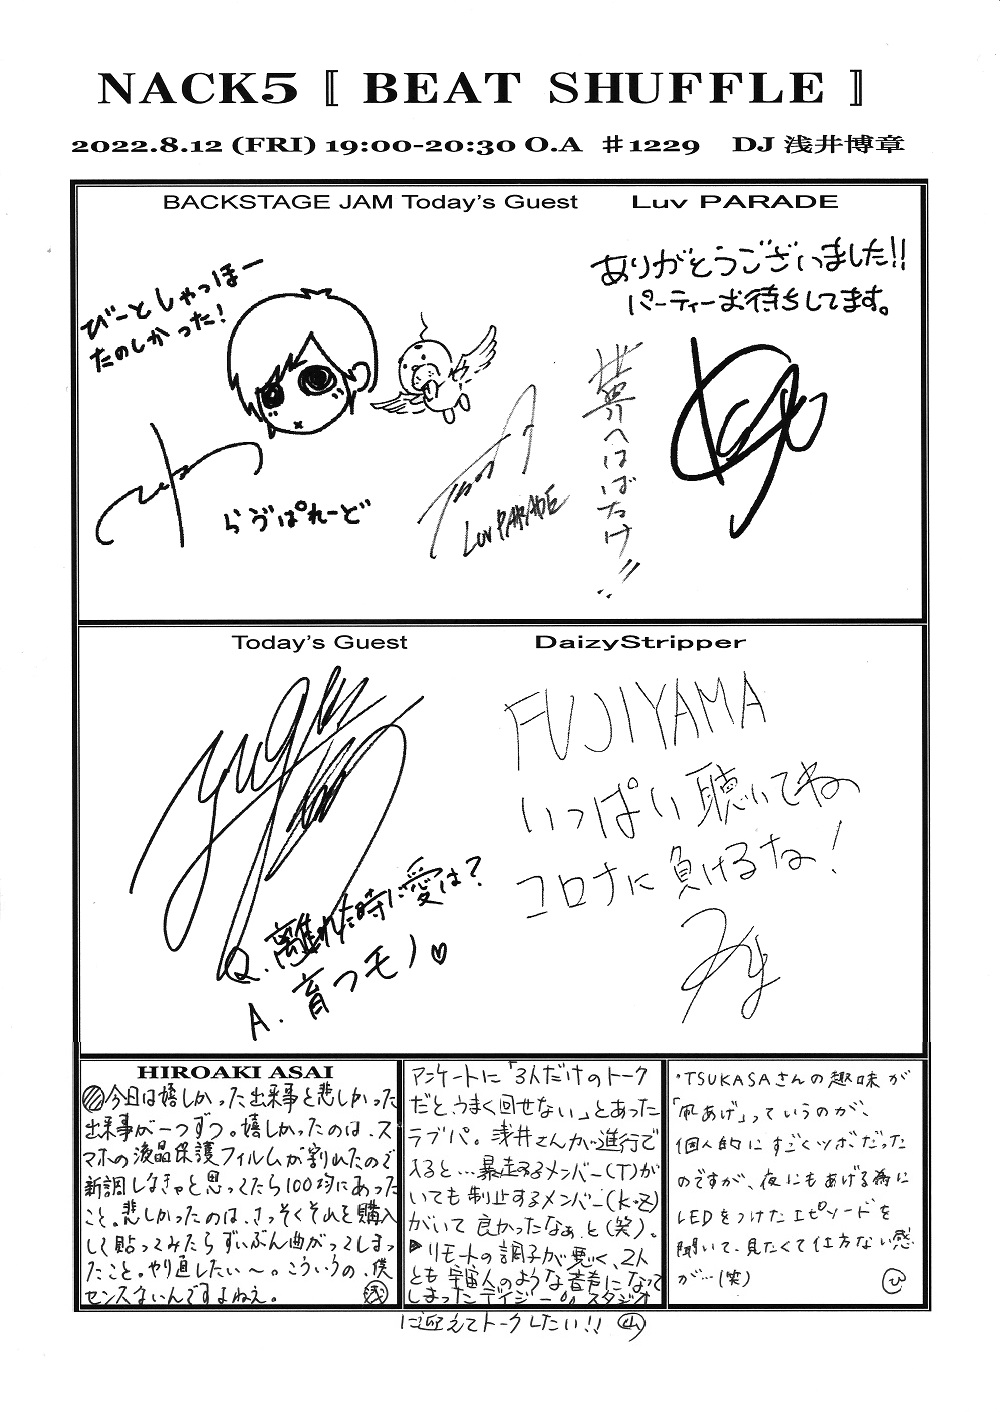 NACK5 〚 BEAT SHUFFLE 〛
2022.8.12 (FRI) 19:00-20:30 O.A #1229 DJ 浅井博章
BACKSTAGE JAM Today's Guest Luv PARADE
びーとしゃっほー
たのしかった!
らヴぱれーど
Luv PARADE
世界へはばたけ!!
ありがとうございました!!
パーティーお待ちしてます。
Today's Guest DaizyStripper
Q.離れた時に愛は?
A.育つモノ♡
FUJIYAMA
いっぱい聴いてね
コロナに負けるな!
HIROAKI ASAI
今日は嬉しかった出来事と悲しかった
出来事が一つずつ。嬉しかったのは、ス
マホの液晶保護フィルムが割れたので
新調しなきゃと思ってたら100均にあった
こと。悲しかったのは、さっそくそれを購入
して貼ってみたらずいぶん曲がってしまっ
たこと。やり直したい〜。こういうの、僕
センスないんですよねえ。 浅
アンケートに「3人だけのトーク
だと、うまく回せない」とあった
ラブパ。浅井さんが進行で
入ると…暴走するメンバー(T)が
いても制止するメンバー(K・Z)
がいて良かったなぁ、と(笑)。
▶リモートの調子が悪く、2人
とも宇宙人のような音声になって
しまったデイジー。スタジオ
に迎えてトークしたい!! 山
・TSUKASAさんの趣味が
「凧あげ」っていうのが、
個人的にすごくツボだった
のですが、夜にもあげる為に
LEDをつけたエピソードを
聞いて、見たくて仕方ない感
が…(笑) ひ